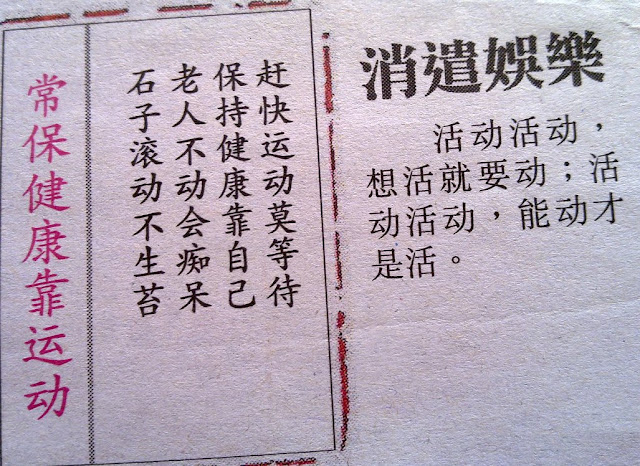 常保健康靠运动
石子滚动不生苔
老人不动会痴呆
保持健康靠自己
赶快运动莫等待
消遣娛樂
活动活动，
想活就要动；活
动活动，能动才
是活。